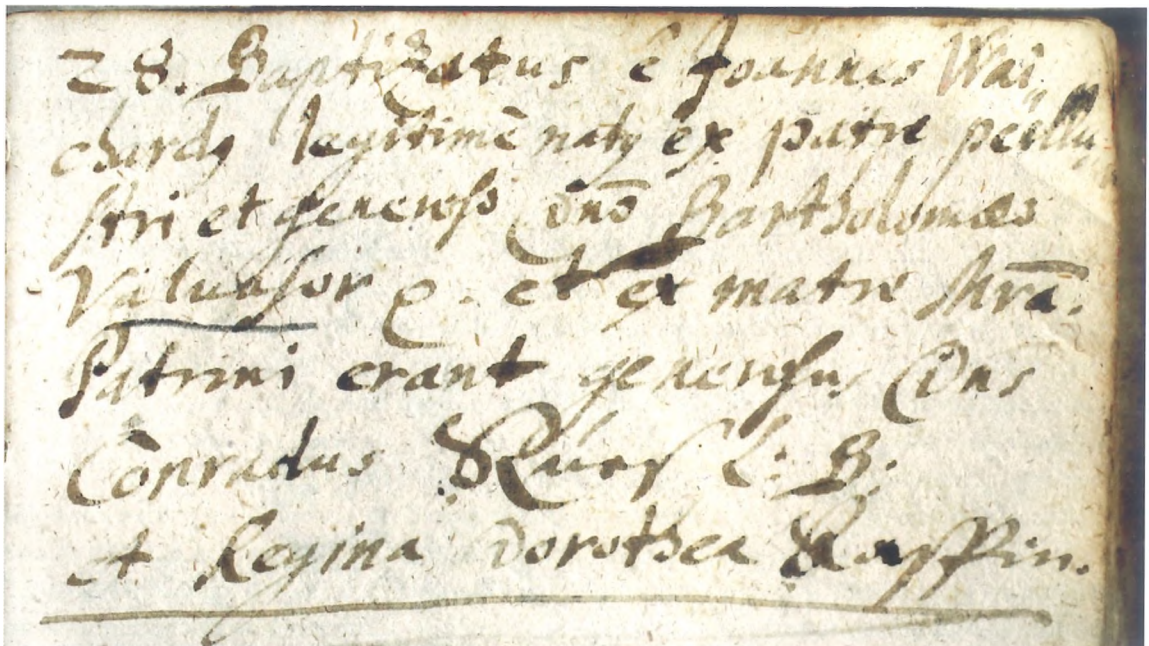 28. Baptizatus e Joannes Wai„
chardꝯ legitimè natꝯ ex patre perillu„
stri et generoso Dn̄o Bartholomæo
Valuasor et ex matre
Patrini erant generosus Dn̄s
Conradus L: B:
et Regina Dorothea